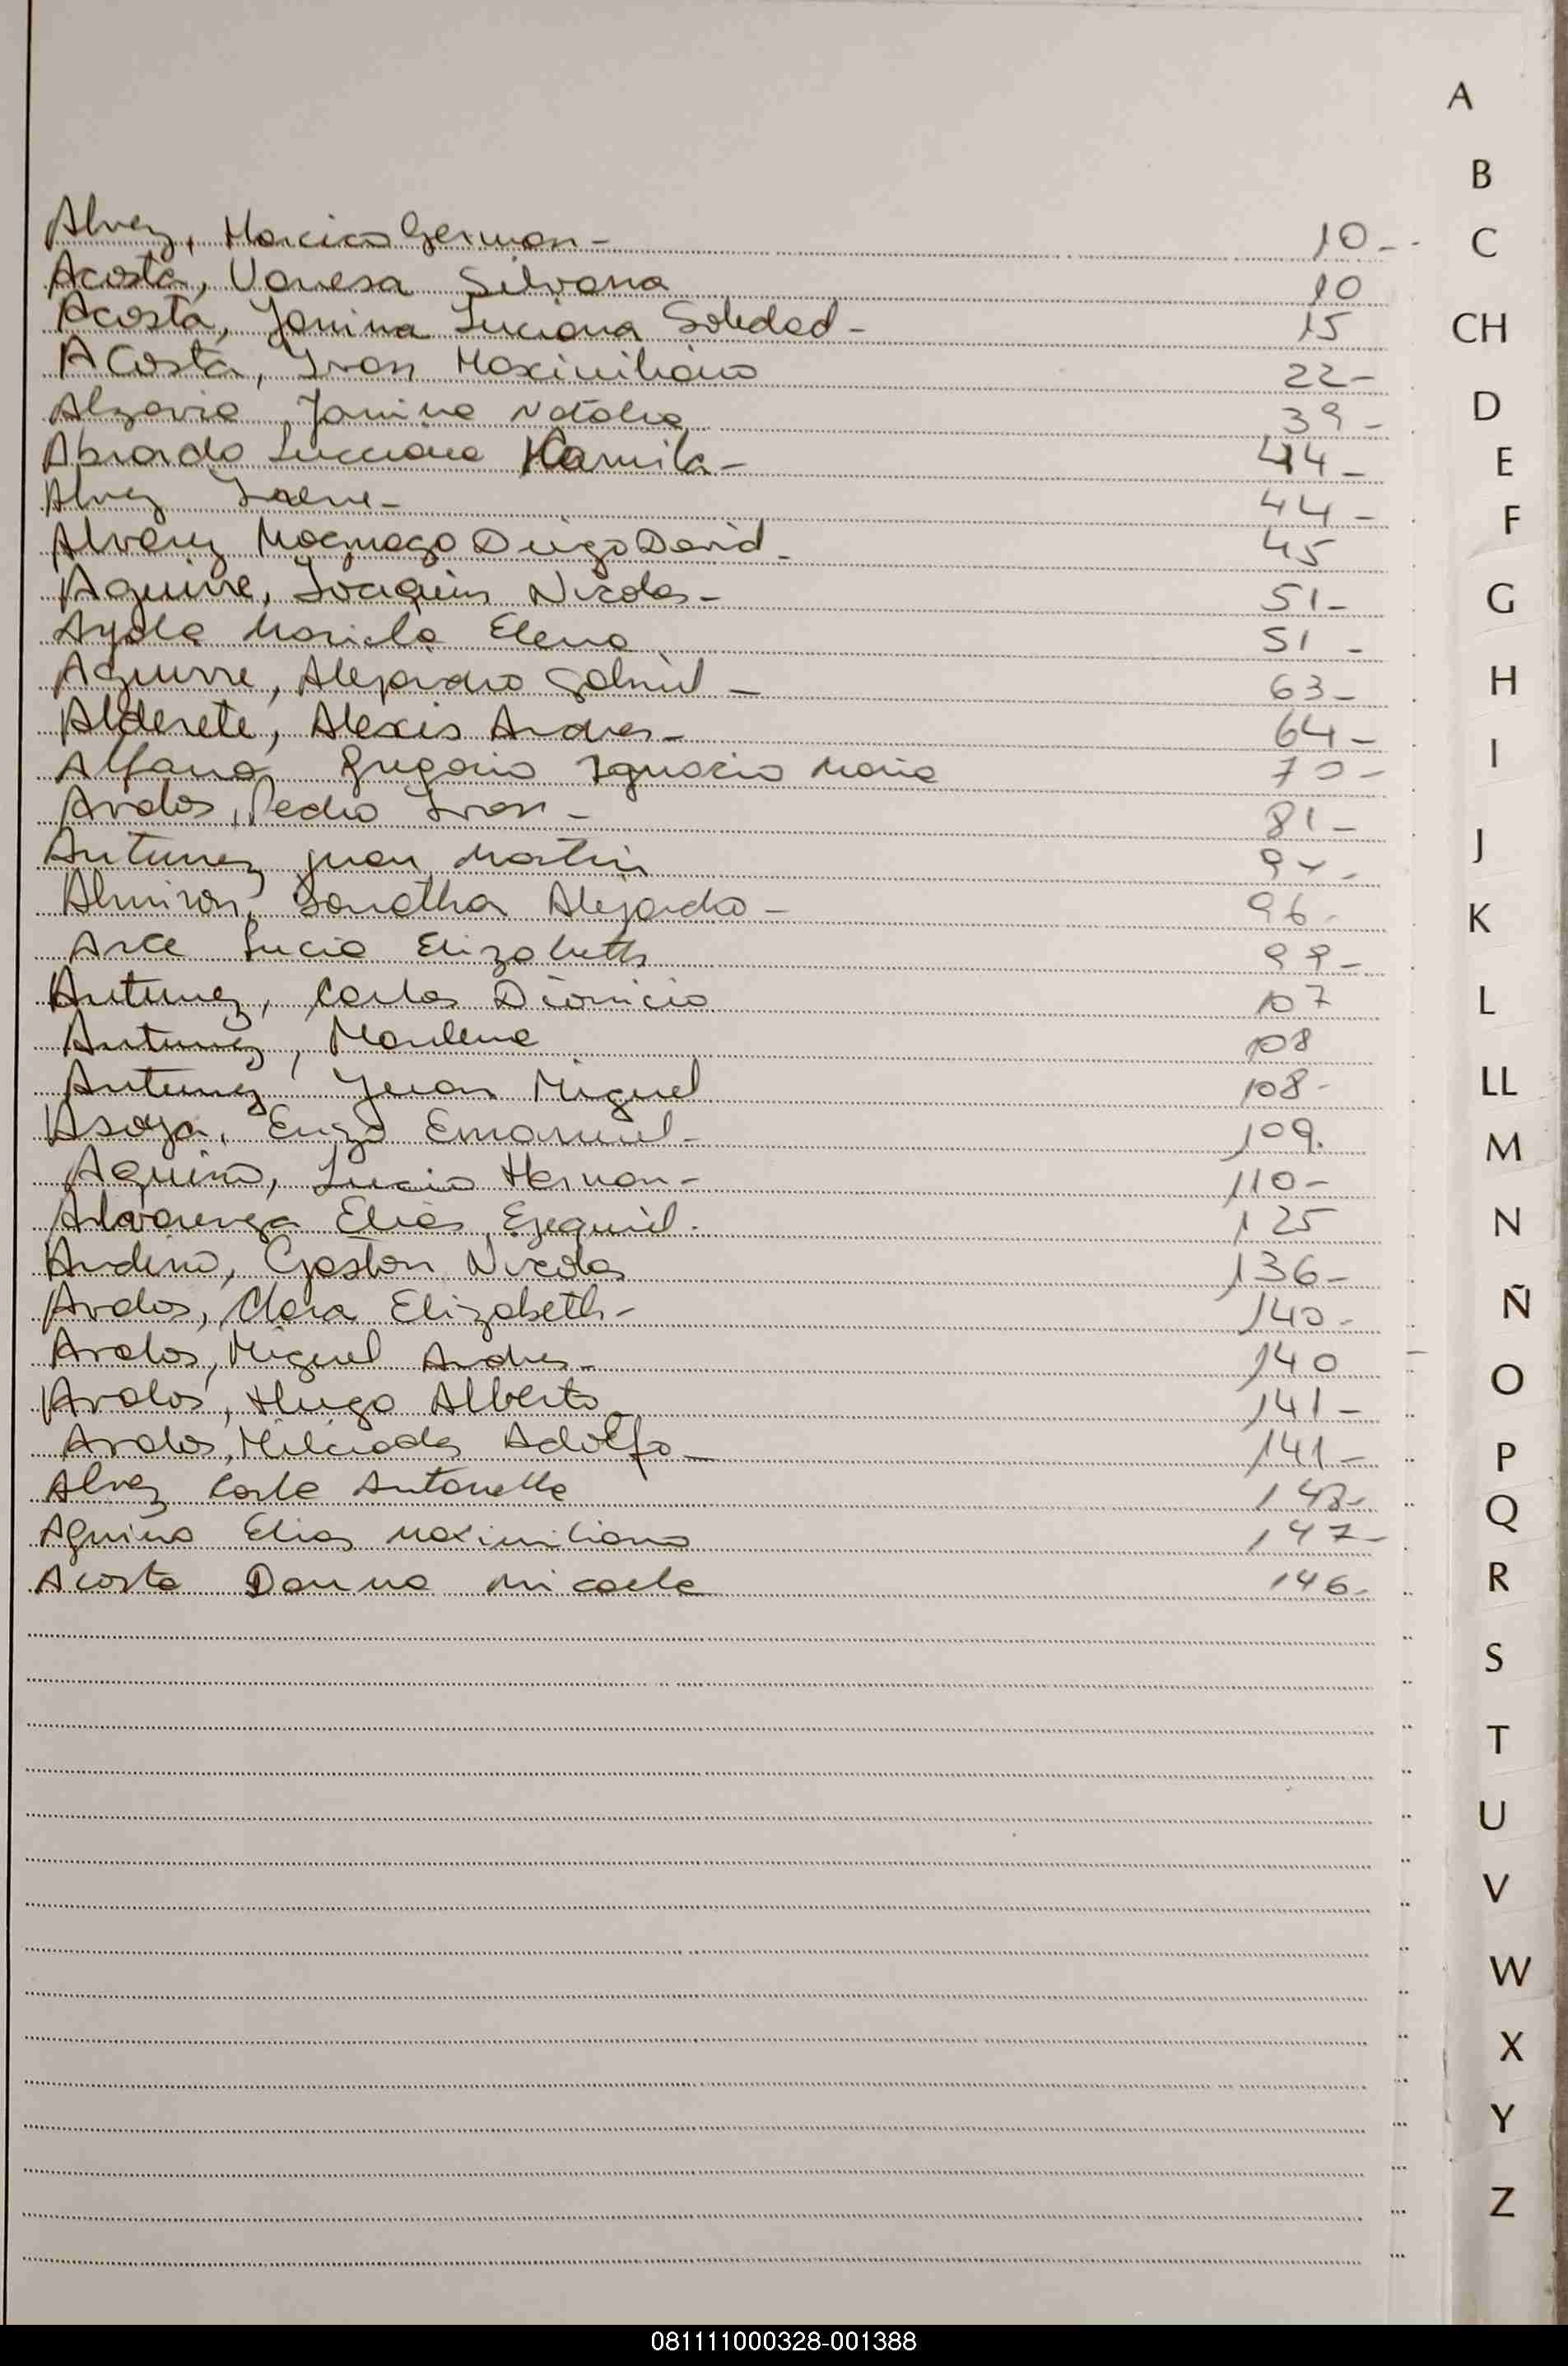 A
B
Alvez, Marcico German - 10 -
C
Acosta, Vanesa Silvana 10
Acosta, Janina Luciana Soledad - 15
CH
Acosta, Ivan Maximiliano 22 -
Janina Natalia 39 -
D
Lucciana Kamila - 44 -
E
Alvez 44 -
F
Alvarez Diego David - 45
Aguirre, Joaquin Nicolas - 51 -
G
Ayala Mariela Elena 51 -
Aguirre, Alejandro Gabriel - 63 -
H
Alderete, Alexis Andres - 64 -
I
Alfano Gregorio Ignacio Maria 70 -
Avalos, Pedro Ivan - 81 -
J
Antunez Juan Martin
Almiron, Jonatha Alejandro - 96 -
K
Arce Lucia Elizabeth 99 -
Antunez, Carlos Dionicio 107
L
Antunez, Marlene 108
Antunez Juan Miguel 108 -
LL
Enzo Emanuel - 109.
M
Aquino, Lucio Hernan - 110 -
Alvarenga Elias Ezequiel. 125
N
Andino, Gaston Nicolas 136 -
Avalos, Clara Elizabeth - 140 -
Ñ
Avalos, Miguel Andres - 140
O
Avalos, Hugo Alberto 141 -
Avalos, Milciades Adolfo - 141 -
P
Alvez Carla Antonella
Q
Aquino Elias Maximiliano 147 -
Acosta Danna Micaela 146 -
R
S
T
U
V
W
X
Y
Z
081111000328-001388